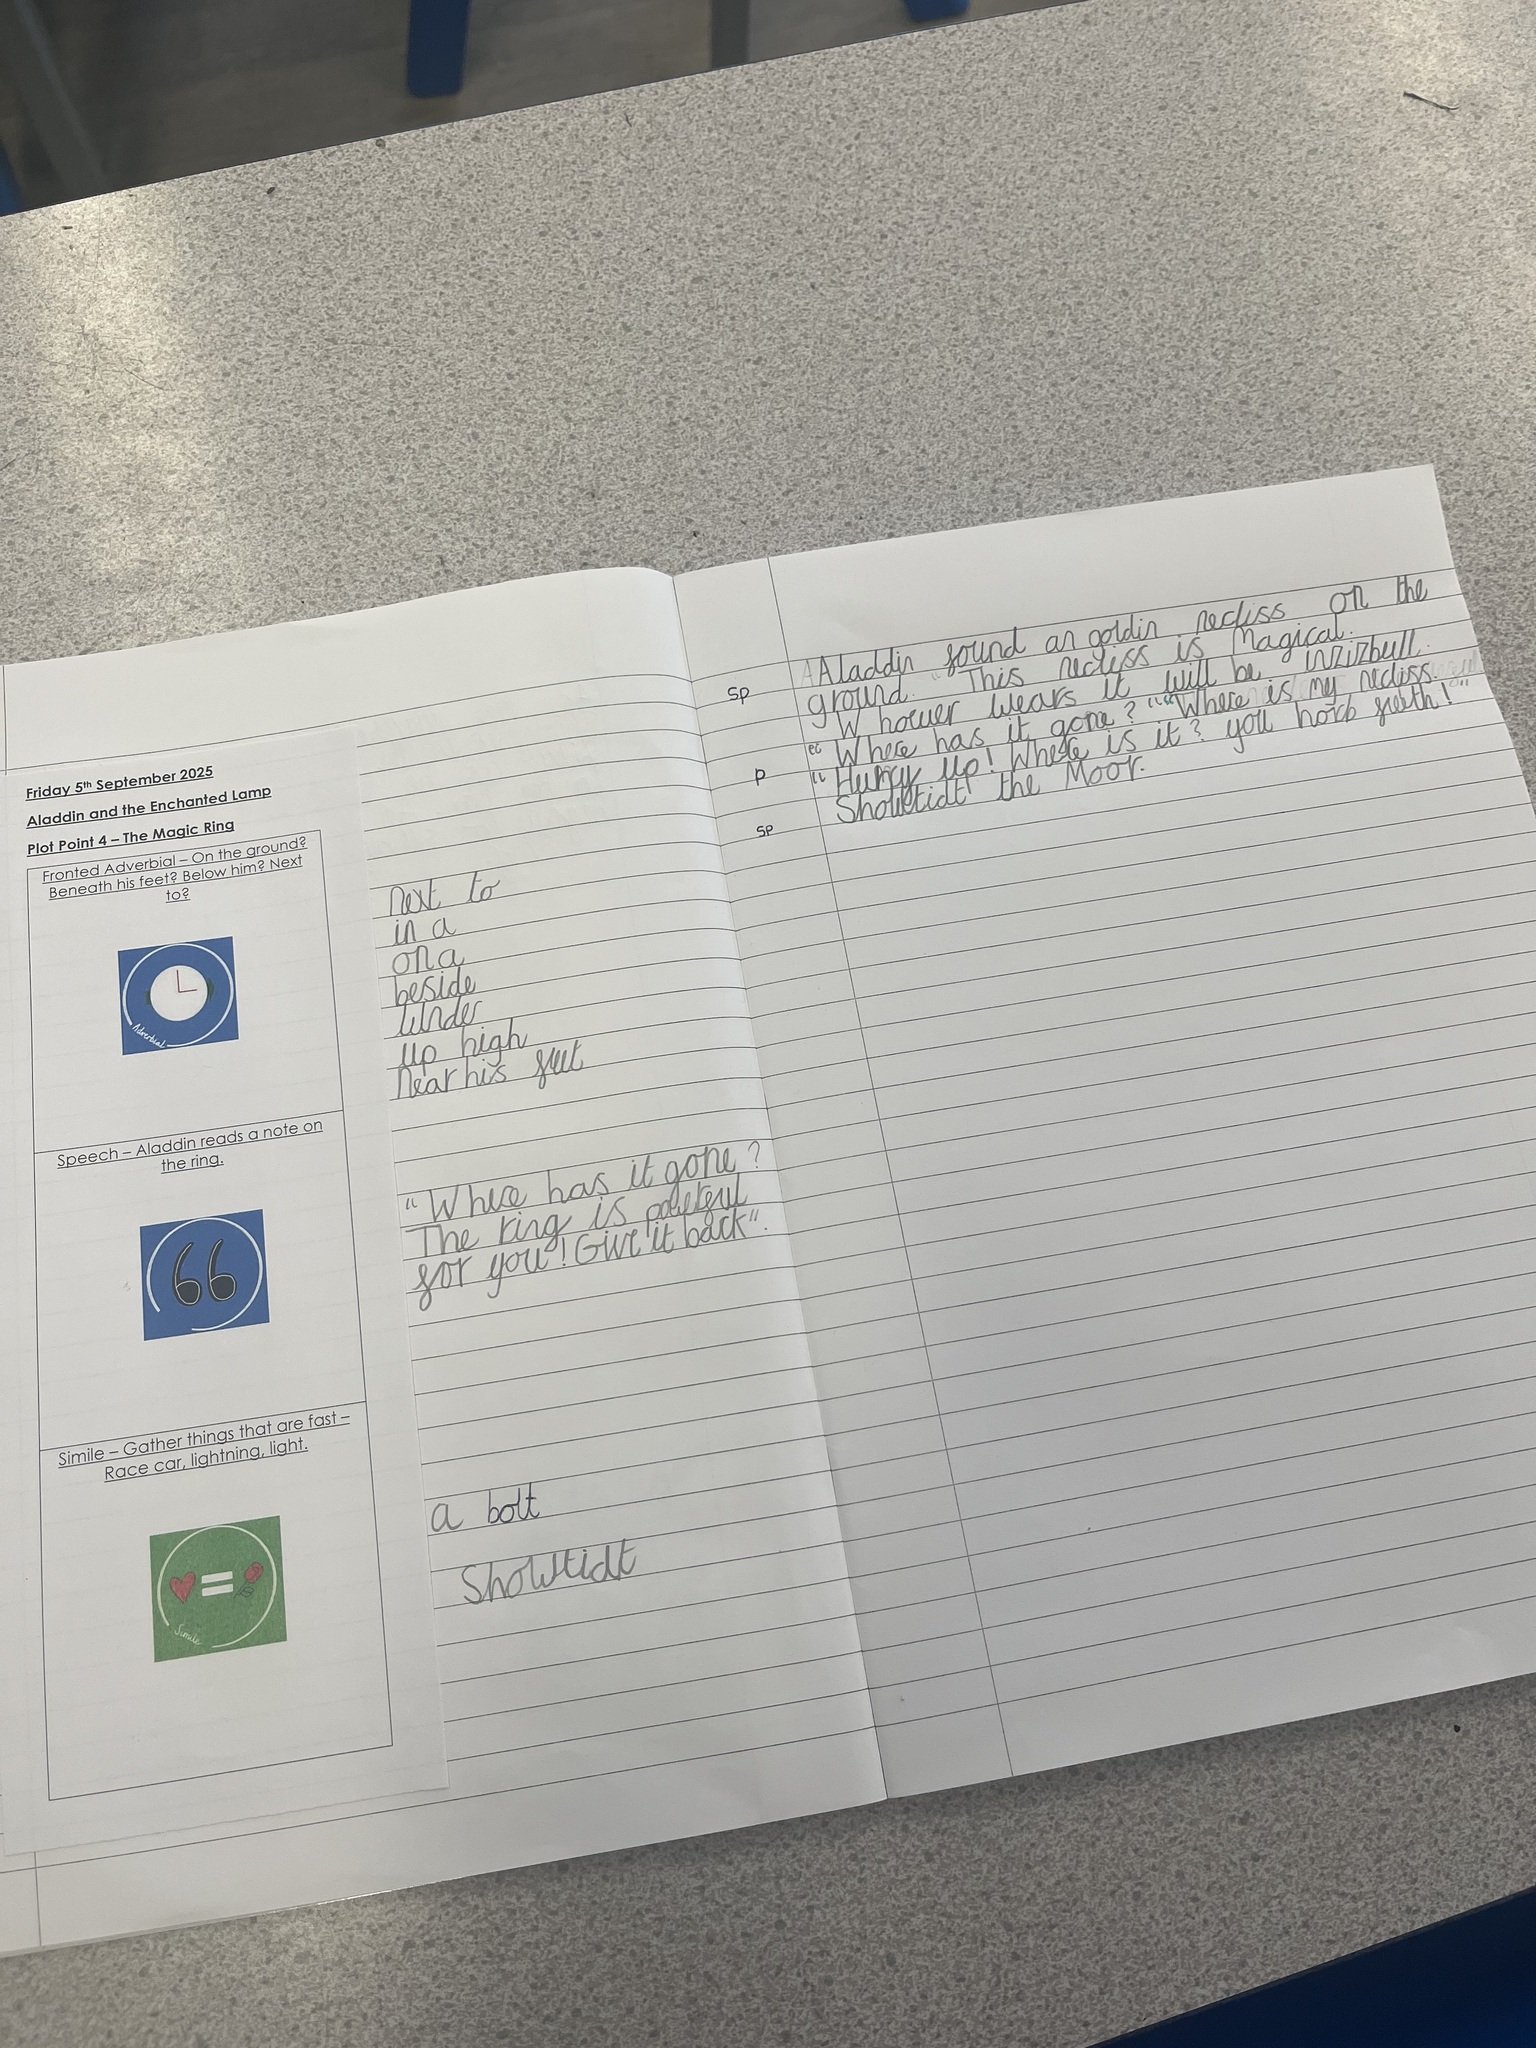 Friday 5th September 2025
Aladdin and the Enchanted Lamp
Plot Point 4 – The Magic Ring
Fronted Adverbial – On the ground?
Beneath his feet? Below him? Next
to?
Adverbial
next to
in a
on a
beside
under
up high
near his feet
Speech – Aladdin reads a note on
the ring.
"Where has it gone?
The ring is
for you! Give it back".
Simile – Gather things that are fast –
Race car, lightning, light.
Simile
a bolt
Showtidt
Aladdin found an goldin necliss on the
sp
ground. "This necliss is Magical.
Whower wears it will be invizbull.
"Where has it gone?" "Where is my necliss.
p
"Hurry up! Where is it? you horb
Showtidt the Moor.
sp